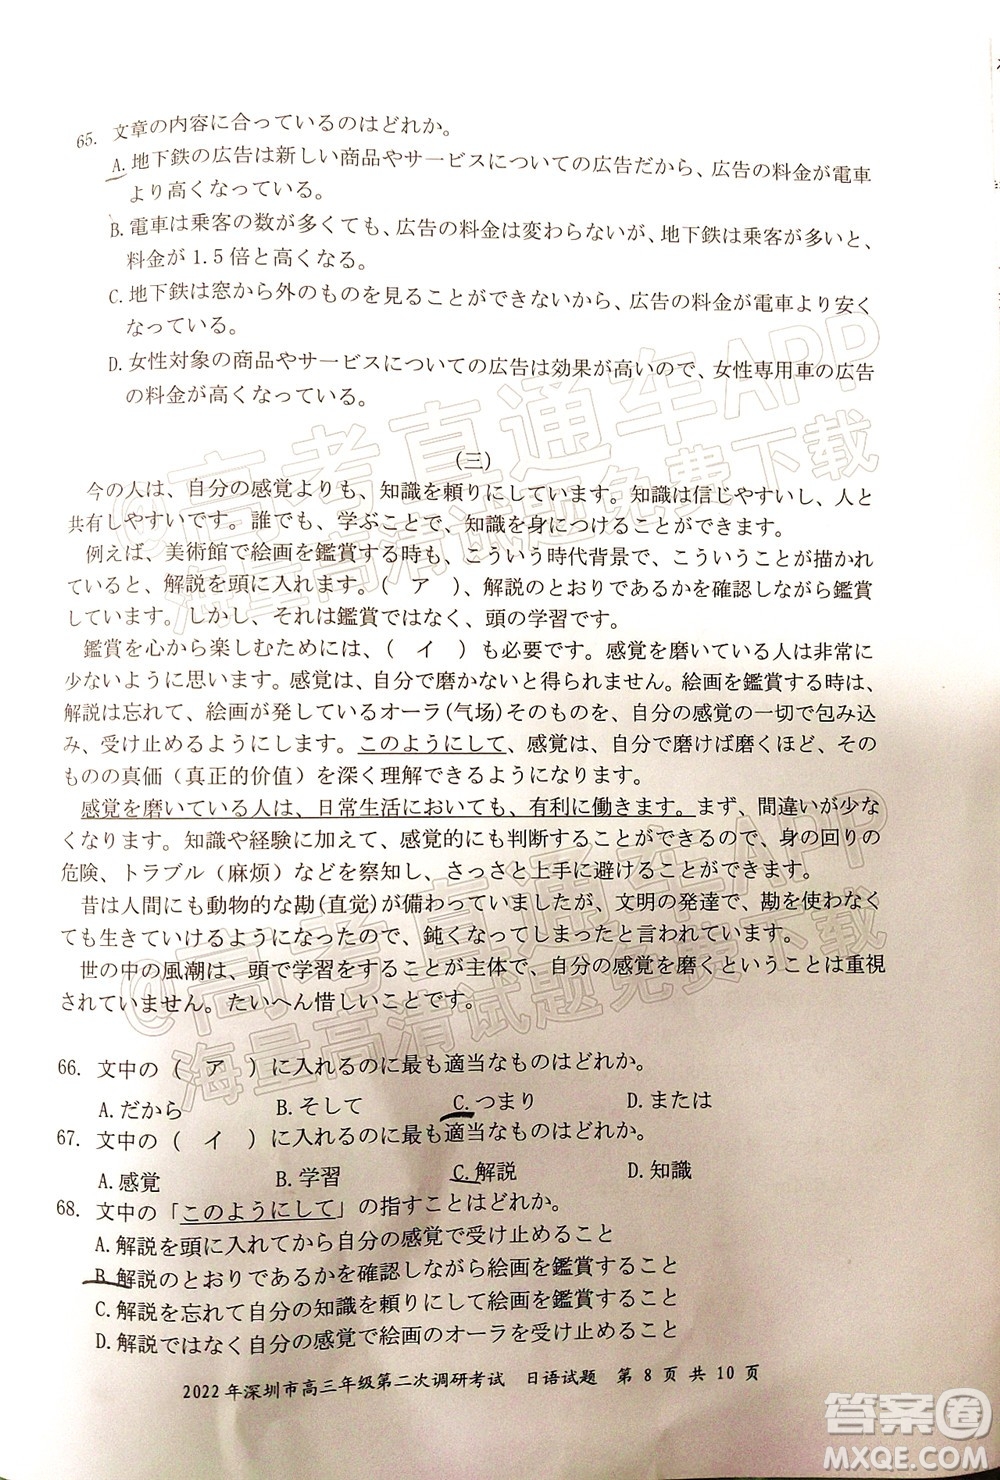 65. 文章の内容に合っているのはどれか。
A. 地下鉄の広告は新しい商品やサービスについての広告だから、広告の料金が電車
より高くなっている。
B. 電車は乗客の数が多くても、広告の料金は変わらないが、地下鉄は乗客が多いと、
料金が 1.5 倍と高くなる。
C. 地下鉄は窓から外のものを見ることができないから、広告の料金が電車より安く
なっている。
D. 女性対象の商品やサービスについての広告は効果が高いので、女性専用車の広告
の料金が高くなっている。
(三)
今の人は、自分の感覚よりも、知識を頼りにしています。知識は信じやすいし、人と
共有しやすいです。誰でも、学ぶことで、知識を身につけることができます。
例えば、美術館で絵画を鑑賞する時も、こういう時代背景で、こういうことが描かれ
ていると、解説を頭に入れます。( ア )、解説のとおりであるかを確認しながら鑑賞
しています。しかし、それは鑑賞ではなく、頭の学習です。
鑑賞を心から楽しむためには、( イ )も必要です。感覚を磨いている人は非常に
少ないように思います。感覚は、自分で磨かないと得られません。絵画を鑑賞する時は、
解説は忘れて、絵画が発しているオーラ(气场)そのものを、自分の感覚の一切で包み込
み、受け止めるようにします。このようにして、感覚は、自分で磨けば磨くほど、その
ものの真価（真正的价值）を深く理解できるようになります。
感覚を磨いている人は、日常生活においても、有利に働きます。まず、間違いが少な
くなります。知識や経験に加えて、感覚的にも判断することができるので、身の回りの
危険、トラブル（麻烦）などを察知し、さっさと上手に避けることができます。
昔は人間にも動物的な勘(直觉)が備わっていましたが、文明の発達で、勘がなく
ても生きていけるようになったので、鈍くなってしまったと言われています。
世の中の風潮は、頭で学習をすることが主体で、自分の感覚を磨くということは重視
されていません。たいへん惜しいことです。
66. 文中の（ ア ）に入れるのに最も適当なものはどれか。
A. だから B. そして C. つまり D. または
67. 文中の（ イ ）に入れるのに最も適当なものはどれか。
A. 感覚 B. 学習 C. 解説 D. 知識
68. 文中の「このようにして」の指すことはどれか。
A. 解説を頭に入れてから自分の感覚で受け止めること
B. 解説のとおりであるかを確認しながら絵画を鑑賞すること
C. 解説を忘れて自分の知識を頼りにして絵画を鑑賞すること
D. 解説ではなく自分の感覚で絵画のオーラを受け止めること
2022 年深圳市高三年级第二次调研考试 日语试题 第 8 页 共 10 页
@高考直通车APP
海量高清试题免费下载
@高考直通车APP
海量高清试题免费下载
答案圈
MXQE.COM